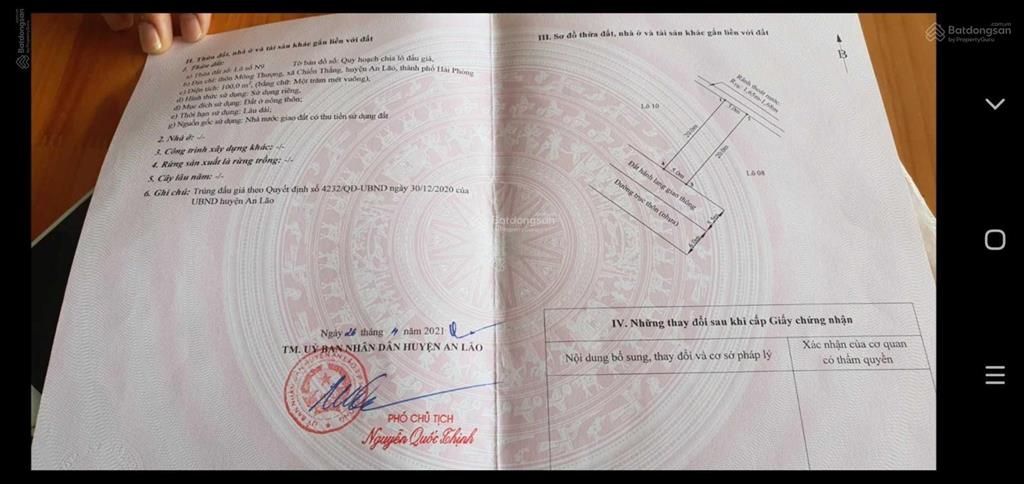 II. Thửa đất, nhà ở và tài sản khác gắn liền với đất
1. Thửa đất:
a) Thửa đất số: Lô số N9 Tờ bản đồ số: Quy hoạch chia lô đấu giá,
b) Địa chỉ: thôn Mông Thượng, xã Chiến Thắng, huyện An Lão, thành phố Hải Phòng
c) Diện tích: 100,0 m², (bằng chữ: Một trăm mét vuông),
d) Hình thức sử dụng: Sử dụng riêng,
đ) Mục đích sử dụng: Đất ở nông thôn;
e) Thời hạn sử dụng: Lâu dài;
g) Nguồn gốc sử dụng: Nhà nước giao đất có thu tiền sử dụng đất
2. Nhà ở: -/-
3. Công trình xây dựng khác: -/-
4. Rừng sản xuất là rừng trồng: -/-
5. Cây lâu năm: -/-
6. Ghi chú: Trúng đấu giá theo Quyết định số 4232/QĐ-UBND ngày 30/12/2020 của
UBND huyện An Lão
Ngày 26 tháng 4 năm 2021
TM. UỶ BAN NHÂN DÂN HUYỆN AN LÃO
PHÓ CHỦ TỊCH
Nguyễn Quốc Thịnh
III. Sơ đồ thửa đất, nhà ở và tài sản khác gắn liền với đất
B
Rãnh thoát nước
Lô 10
5.0m
20.0m
20.0m
5.0m
Lô 08
Đất hành lang giao thông
Đường trục thôn (nhựa)
5.5m
6.0m
IV. Những thay đổi sau khi cấp Giấy chứng nhận
Nội dung bổ sung, thay đổi và cơ sở pháp lý
Xác nhận của cơ quan
có thẩm quyền
Batdongsan
by PropertyGuru
Batdongsan
.com.vn
by PropertyGuru
Batdongsan